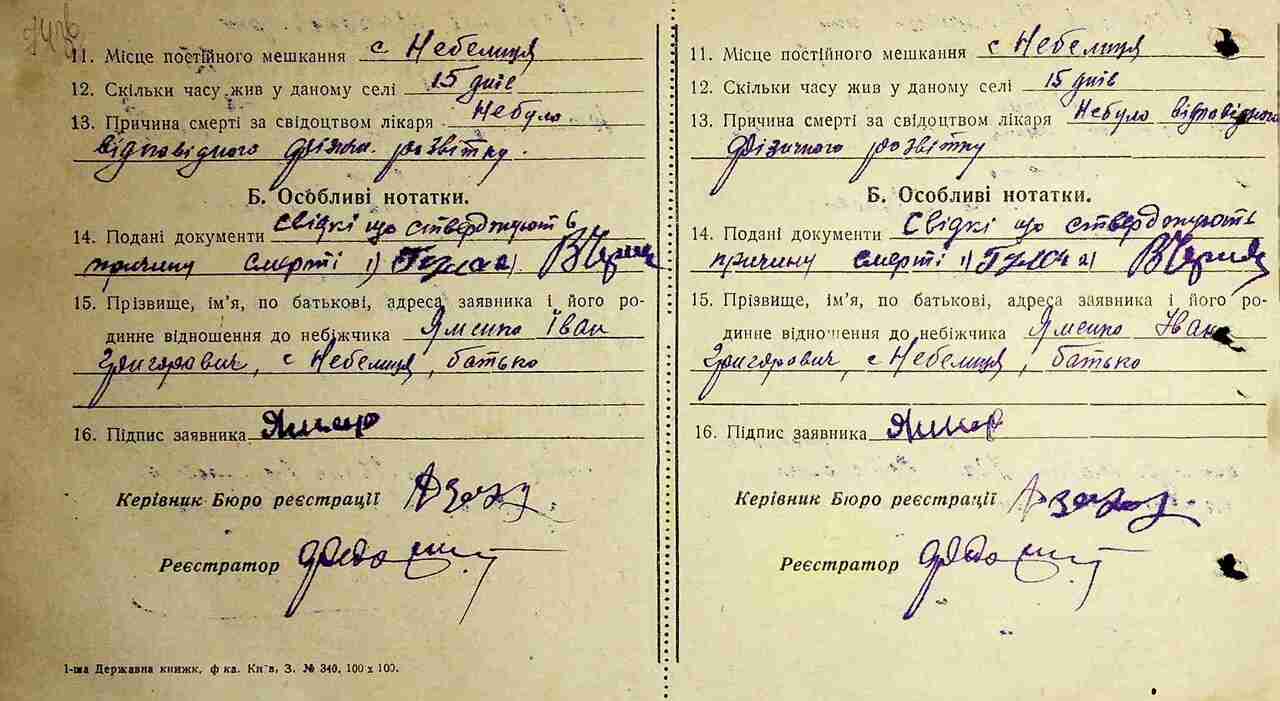 11. Місце постійного мешкання с Небелиця
12. Скільки часу жив у даному селі 15 днів
13. Причина смерті за свідоцтвом лікаря Небуло
відповідного фізичн. розвітку.
Б. Особливі нотатки.
14. Подані документи Свідкі що стверджують
причину смерті 1) 2)
15. Прізвище, ім’я, по батькові, адреса заявника і його ро-
динне відношення до небіжчика Іван
Григорович, с Небелиця, батько
16. Підпис заявника
Керівник Бюро реєстрації
Реєстратор
1-ша Державна книжк. ф-ка. Київ, З. № 340, 100 х 100.
11. Місце постійного мешкання с Небелиця
12. Скільки часу жив у даному селі 15 днів
13. Причина смерті за свідоцтвом лікаря Небуло відповідного
фізичного розвітку
Б. Особливі нотатки.
14. Подані документи Свідкі що стверджують
причину смерті 1) 2)
15. Прізвище, ім’я, по батькові, адреса заявника і його ро-
динне відношення до небіжчика Іван
Григорович, с Небелиця, батько
16. Підпис заявника
Керівник Бюро реєстрації
Реєстратор